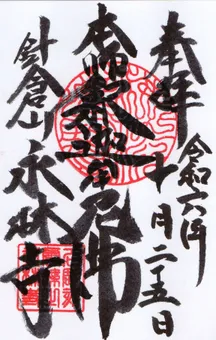 奉拝
令和六年
十月二十五日
本師釈迦牟尼佛
針倉山
永林寺